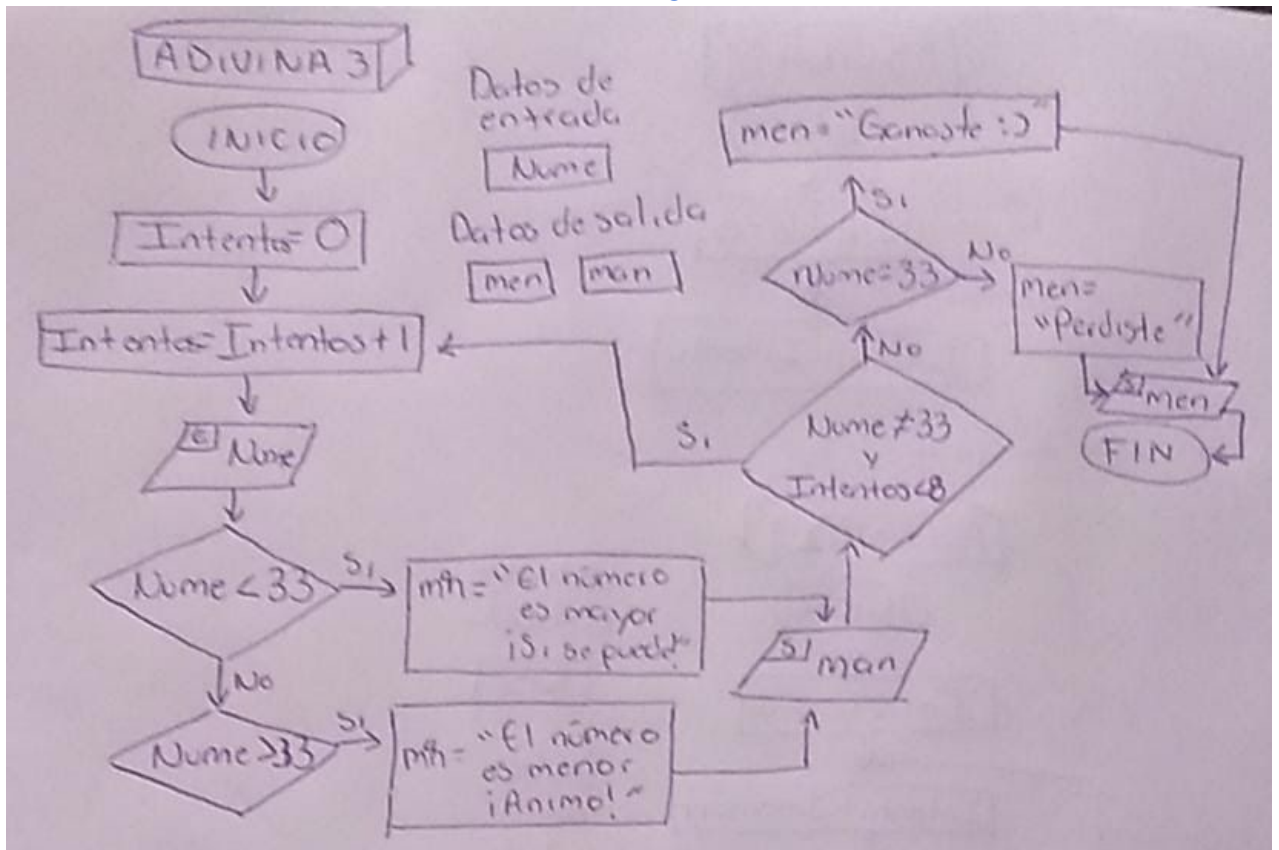 ADIVINA 3
INICIO
Intentos=0
Intentos=Intentos+1
E Nume
Nume<33
Si
No
Nume>33
Si
Datos de
entrada
Nume
Datos de salida
men man
man= "El número
es mayor
¡Si se puede!"
man= "El número
es menor
¡Animo!"
S man
Nume≠33
y
Intentos<8
Si
No
Nume=33
Si
No
men="Ganaste :)"
men=
"Perdiste"
S men
FIN